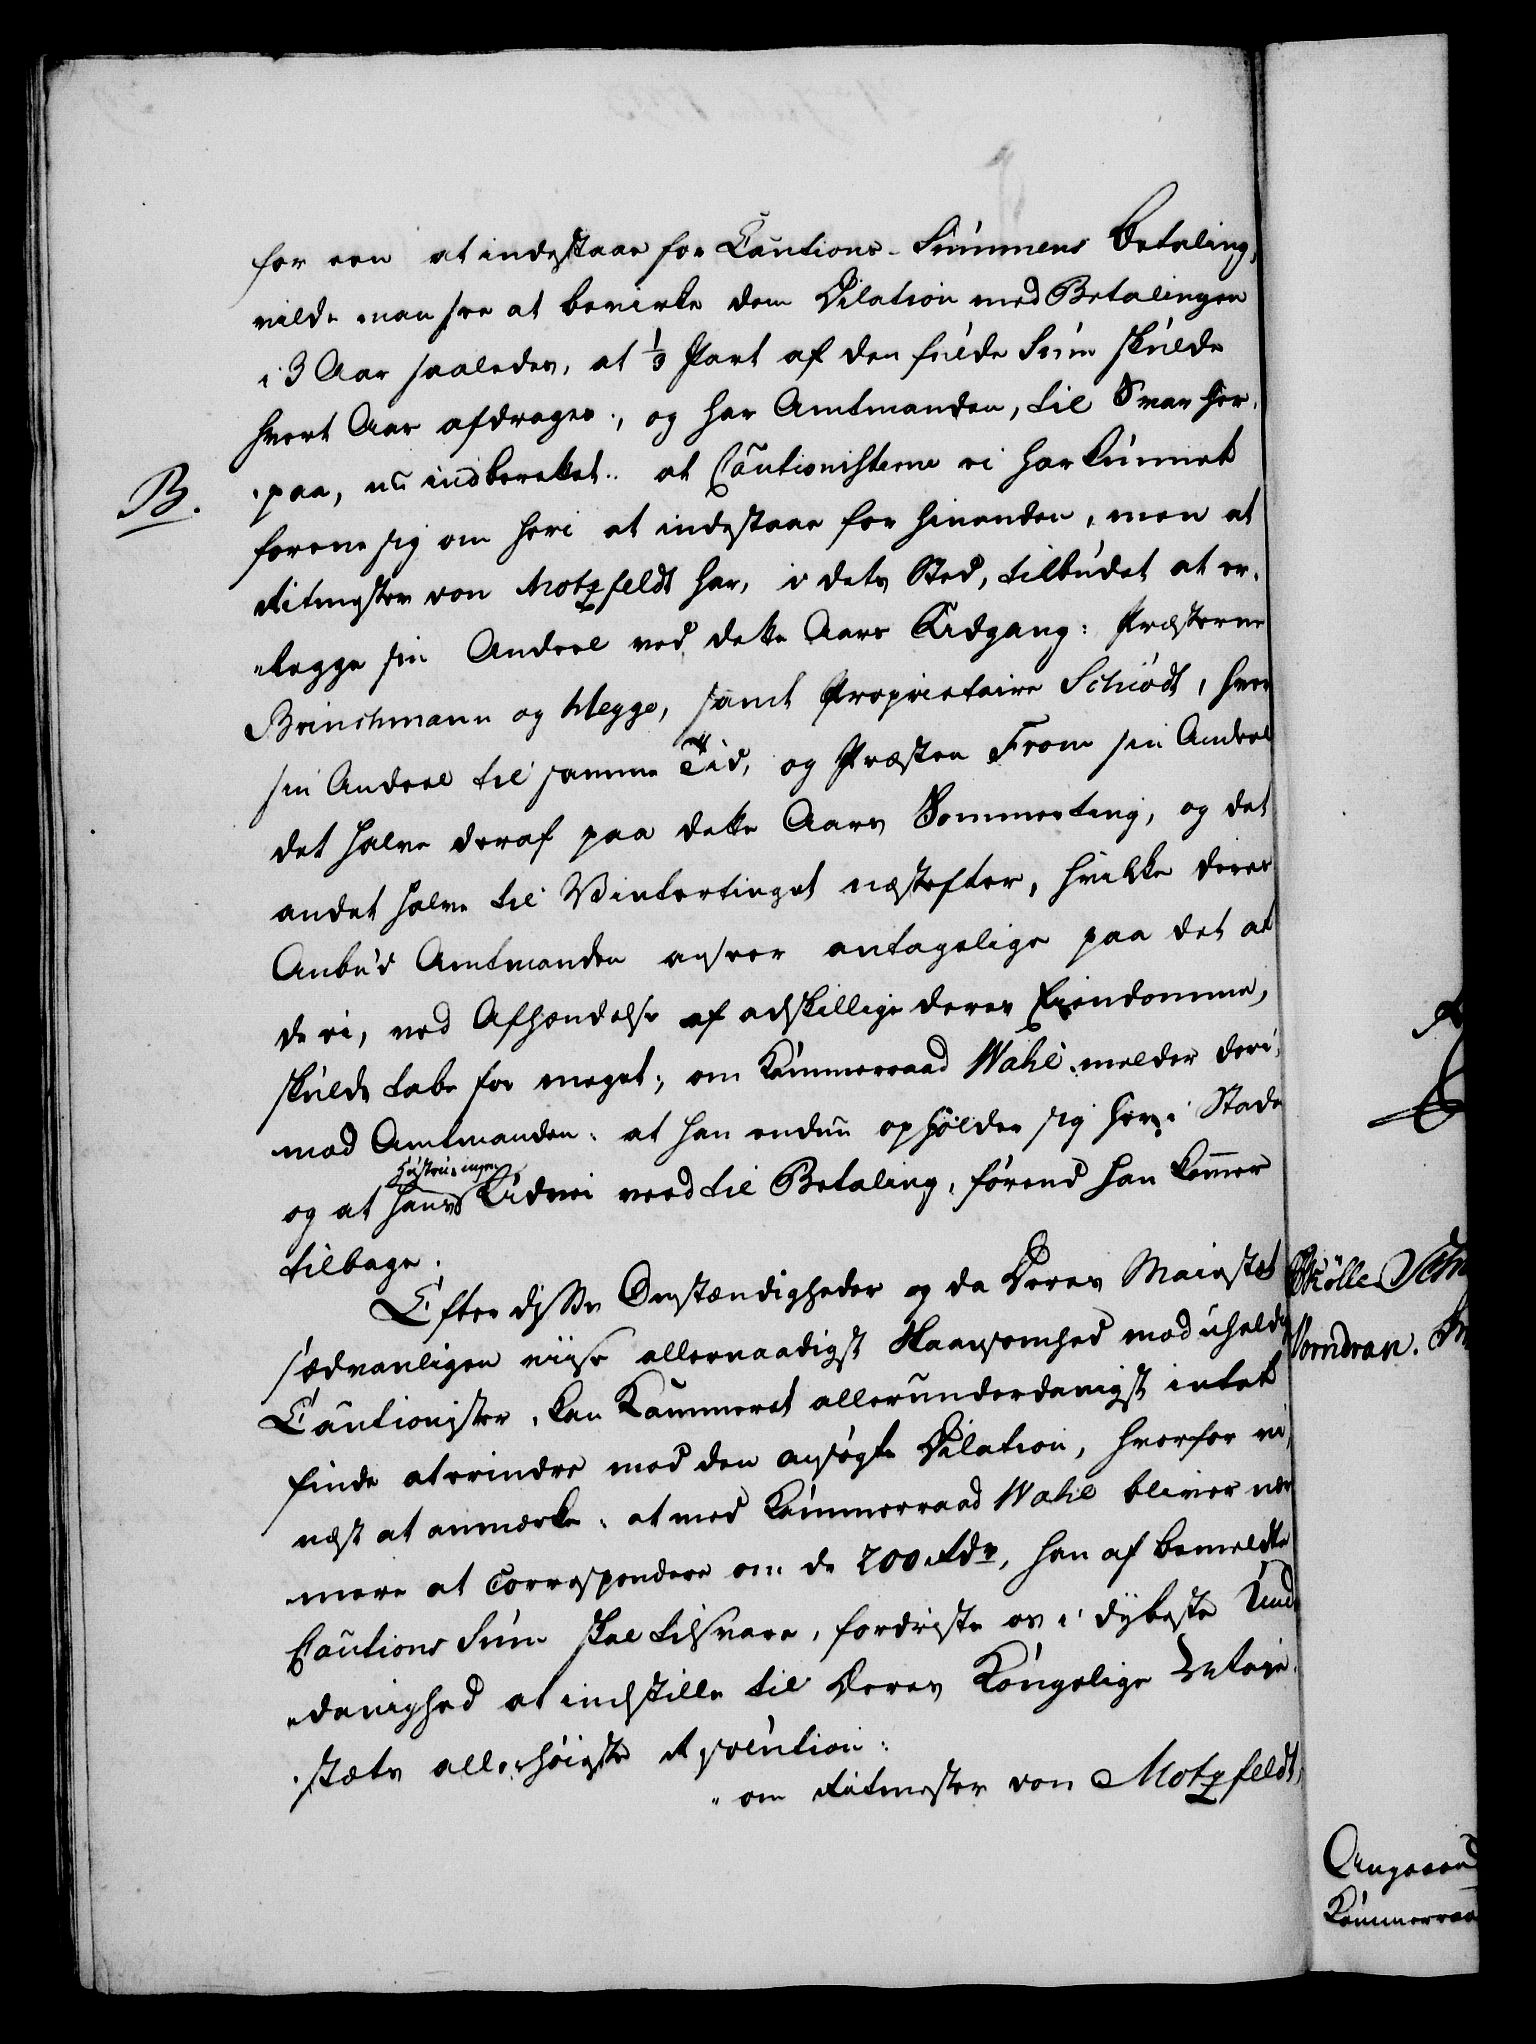 for een at indestaae for Cautions-Summens Betaling,
vilde man see at bevirke dem Dilation med Betalingen
i 3 Aar saaledes, at 1/3 Part af den fulde Sum skulde
hvert Aar afdrages; og har Amtmanden, til Svar her-
paa, nu indberettet: at Cautionisterne ei har kunnet
B.
forene sig om heri at indestaae for hinanden, men at
Ritmester von Motzfeldt har, i dets Sted, tilbudet at er-
legge sin Andeel ved dette Aars Udgang: Præsterne
Brinchmann og Hegge, samt Proprietaire Schiödt, hver
sin Andeel til samme Tid, og Præsten From sin Andeel
det halve deraf paa dette Aars Sommerting, og det
andet halve til Vintertinget næstefter, hvilke deres
Anbud Amtmanden anseer antagelige paa det at
de ei, ved Afhændelse af adskillige deres Eiendomme,
skulde tabe for meget; om Kammerraad Wahl melder deri-
mod Amtmanden: at han endnu opholder sig her i Staden
og at hans Hustrue ingen Udvei veed til Betaling, førend han kommer
tilbage.
Efter disse Omstændigheder og da Deres Majestet
sædvanligen viise allernaadigst Skaansomhed mod uheldige
Cautionister, kan Kammeret allerunderdanigst intet
finde at erindre mod den ansøgte Dilation, hvorfor vi,
næst at anmærke: at med Kammerraad Wahl bliver nær-
mere at correspondere om de 200 Rdr, han af bemeldte
Cautions Sum skal tilsvare, fordriste os i dybeste Under-
danighed at indstille til Deres Kongelige Maje-
stæts allerhøieste Resolution:
om Ritmester von Motzfeldt,
Skölle
Vorndran.
Angaaend
Kammerraa